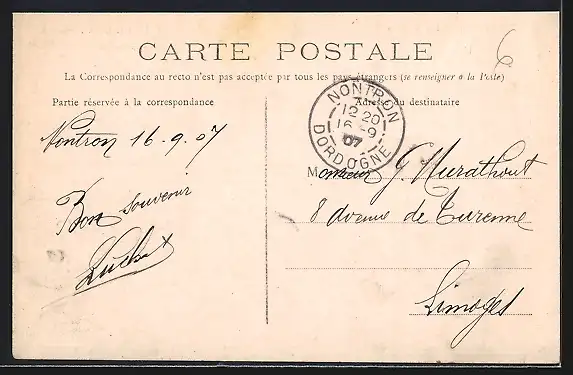 CARTE POSTALE
6
La Correspondance au recto n'est pas acceptée par tous les pays étrangers (se renseigner à la Poste)
Partie réservée à la correspondance
Adresse du destinataire
NONTRON
12 20
16 -9
07
DORDOGNE
Nontron 16.9.07
Bon souvenir
Monsieur G. Murathout
8 Avenue de Turenne
Limoges